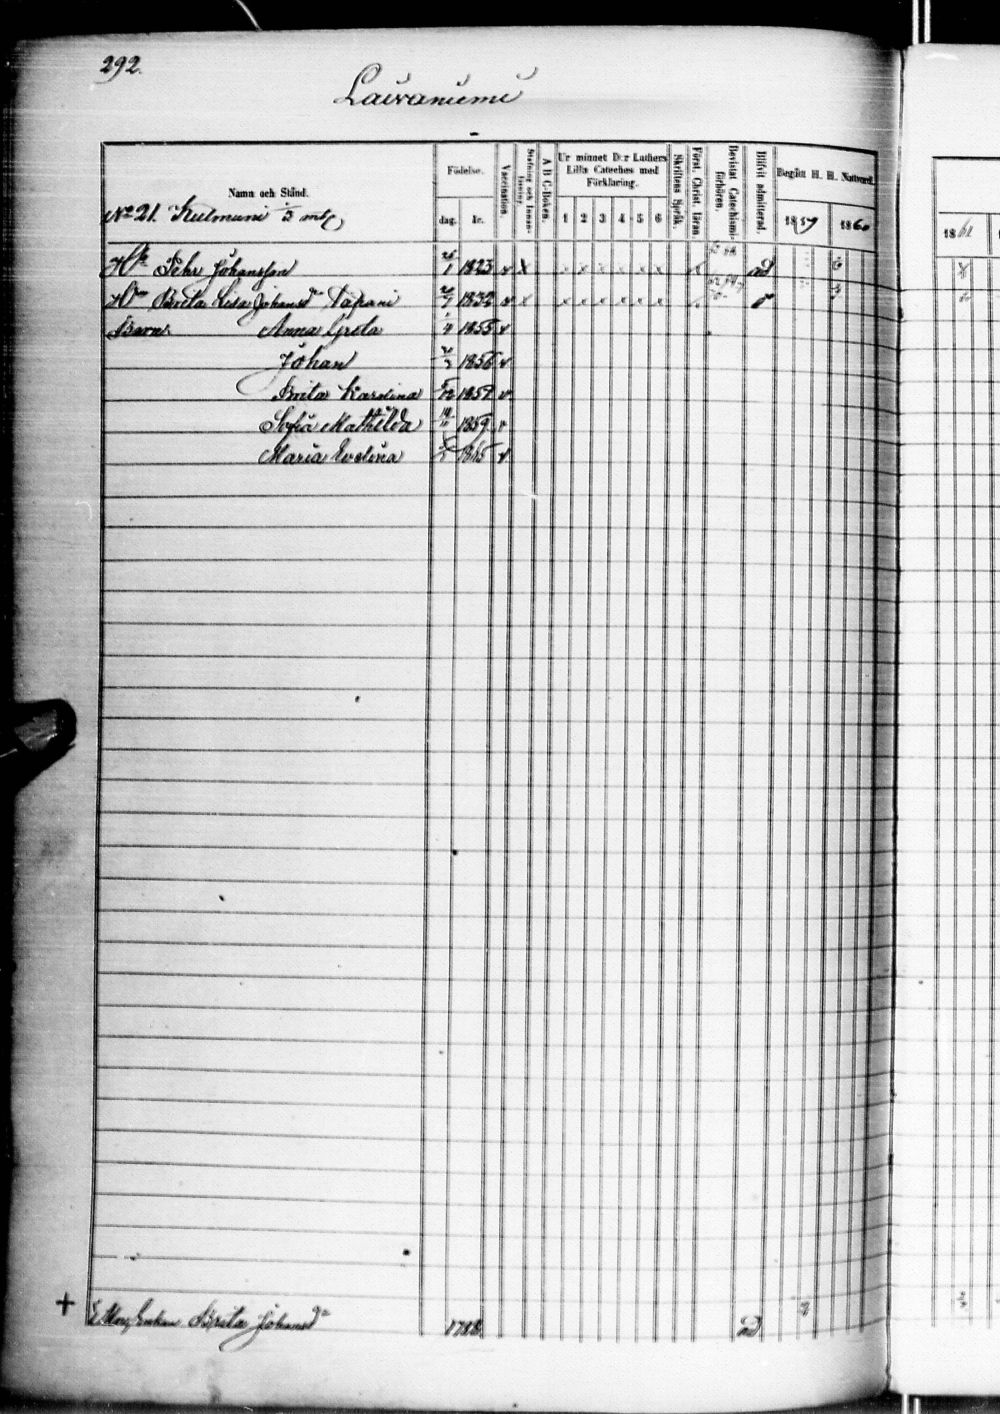 292.
Laivaniemi
Namn och Stånd.
Födelse.
dag. år.
Vaccination.
Stafning och Innanläsning.
A B C-Boken.
Ur minnet D:r Luthers Lilla Cateches med Förklaring.
1 2 3 4 5 6
Skriftens Språk.
Först. Christ. läran.
Bevistat Catechismiförhören.
Blifvit admitterad.
Begått H. H. Nattvard.
1859 1860
1861
No 21. Kulmuni
Pehr Johansson 1823 v x x x x x x x ad
Brita Lisa Johansdr Tapani 1832 v x x x x x x x
Barn: Anna Greta 1855 v
Johan 1856 v
Brita Karolina 5/12 1857 v
Sofia Mathilda 1859 v
Maria Evelina 1865 v
+ Enkan Brita Johansdr 1788 ad